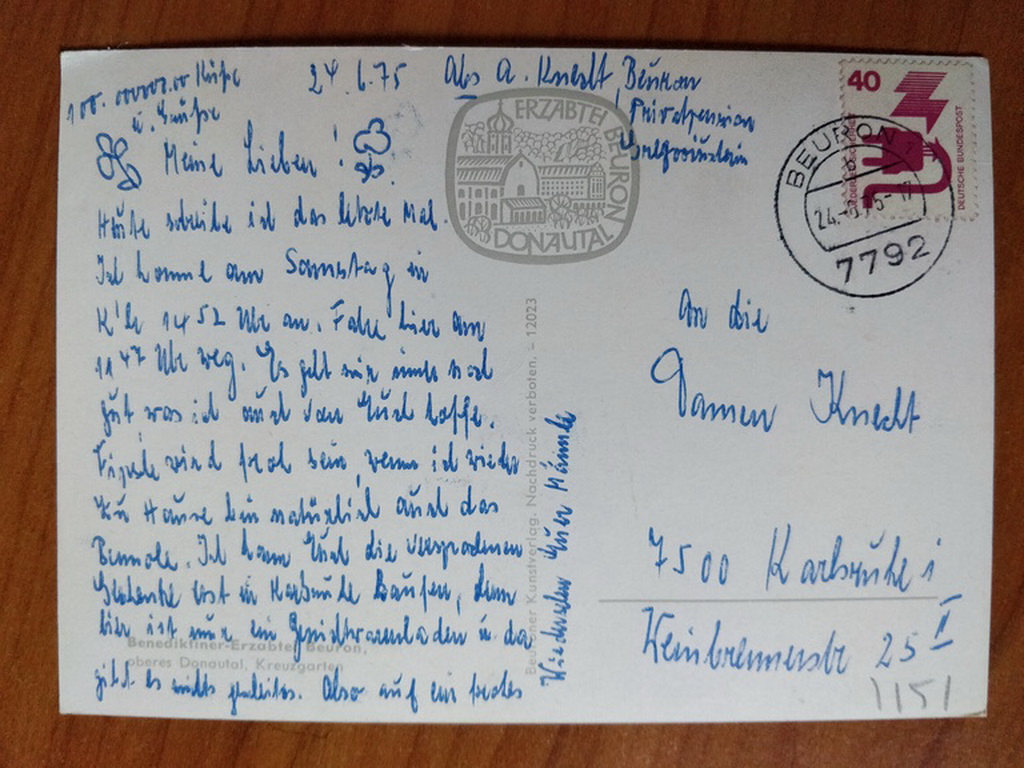 100.000000.00 Küße
u. Grüße
24.6.75
Abs A. Knecht Beuron
Privatpension
Meine Lieben!
Heute schreibe ich das letzte Mal.
Ich komme am Samstag in
K'he 14 52 Uhr an. Fahre hier um
11 47 Uhr weg. Es geht mir immer noch
gut was ich auch von Euch hoffe.
wird froh sein, wenn ich wieder
zu Hause bin natürlich auch das
Bemole. Ich kann Euch die versprochenen
Geschenke erst in Karlsruhe kaufen, denn
hier ist nur ein Gemischtwarenladen u. da
gibt es nichts gescheites. Also auf ein frohes
Wiedersehn Euer Männle
ERZABTEI BEURON
DONAUTAL
40
DEUTSCHE BUNDESPOST
BEURON 1
24.-6.75-17
7792
An die
Damen Knecht
7500 Karlsruhe 1
Weinbrennerstr 25 II
1151
Benediktiner-Erzabtei Beuron,
oberes Donautal, Kreuzgarten
Beuroner Kunstverlag. Nachdruck verboten. – 12023